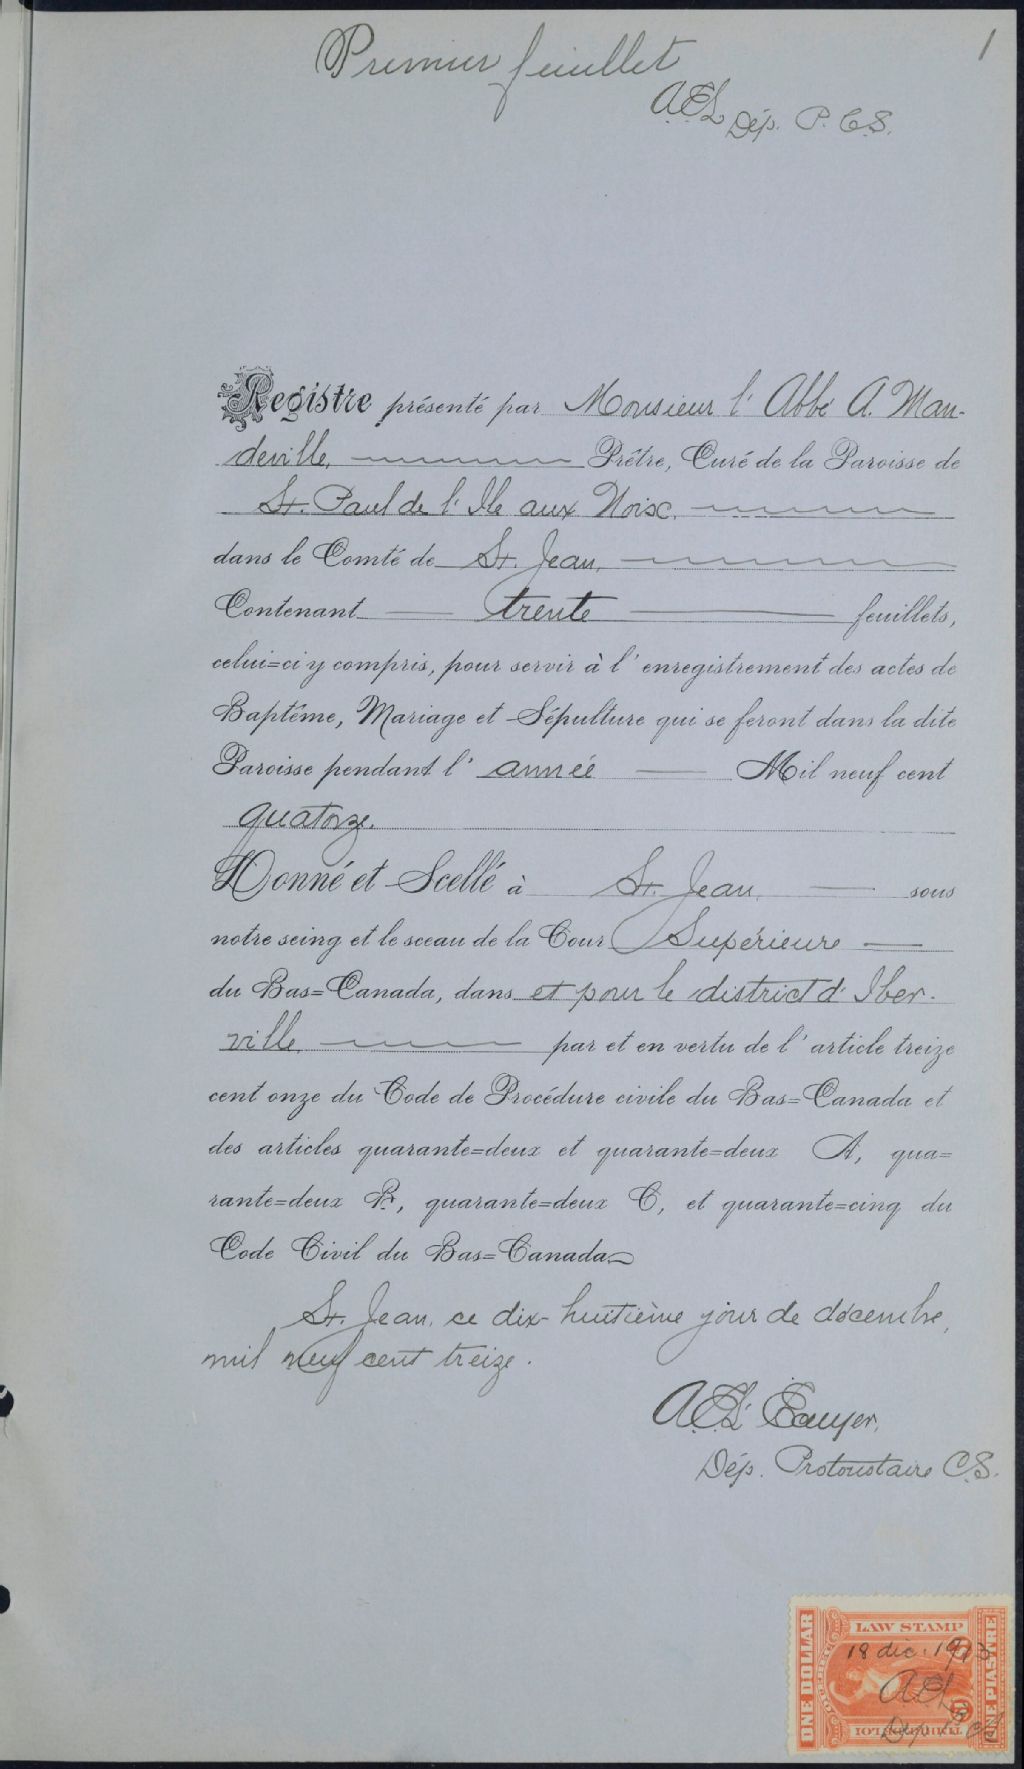 Premier feuillet
1
Dép. P. C. S.
Registre présenté par Monsieur l'Abbé A. Man-
deville, Prêtre, Curé de la Paroisse de
St. Paul de l'Ile aux Noix,
dans le Comté de St. Jean,
Contenant trente feuillets,
celui=ci y compris, pour servir à l'enregistrement des actes de
Baptême, Mariage et Sépulture qui se feront dans la dite
Paroisse pendant l'année Mil neuf cent
quatorze.
Donné et Scellé à St. Jean, sous
notre seing et le sceau de la Cour Supérieure
du Bas=Canada, dans et pour le district d'Iber-
ville, par et en vertu de l'article treize
cent onze du Code de Procédure civile du Bas=Canada et
des articles quarante=deux et quarante=deux A, qua=
rante=deux B, quarante=deux C, et quarante=cinq du
Code Civil du Bas=Canada
St. Jean, ce dix-huitième jour de décembre,
mil neuf cent treize.
Dép. Protonotaire C.S.
ONE DOLLAR
LAW STAMP
QUEBEC
ONE PIASTRE
18 déc. 1913